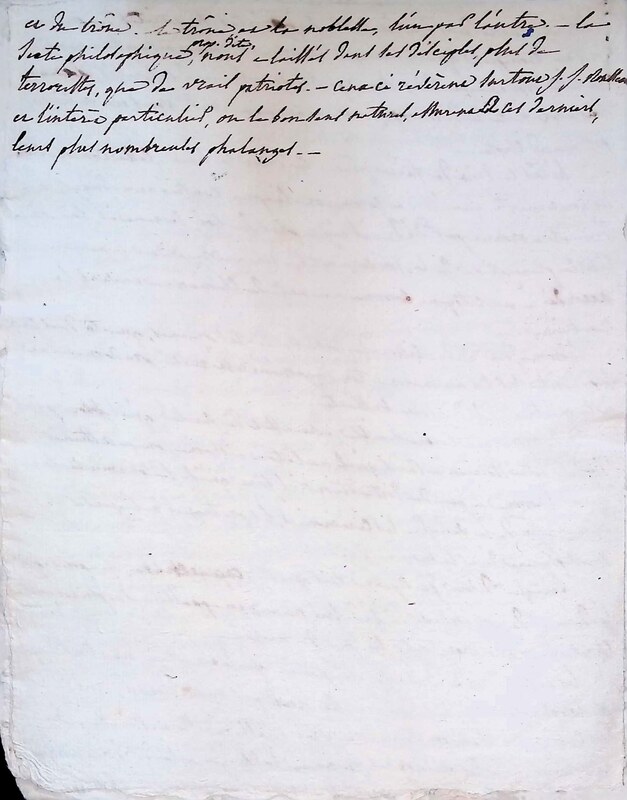 et du trône. le trône et la noblesse, l'un par l'autre. — la
secte philosophique, prop. dite, nous a laissés dans ses disciples, plus de
terroristes, que de vrais patriotes. — ceux-ci révèrent surtout J. J. Rousseau
et l'intérêt particulier, ou le bon sens naturel, de ces derniers,
leurs plus nombreuses phalanges. —